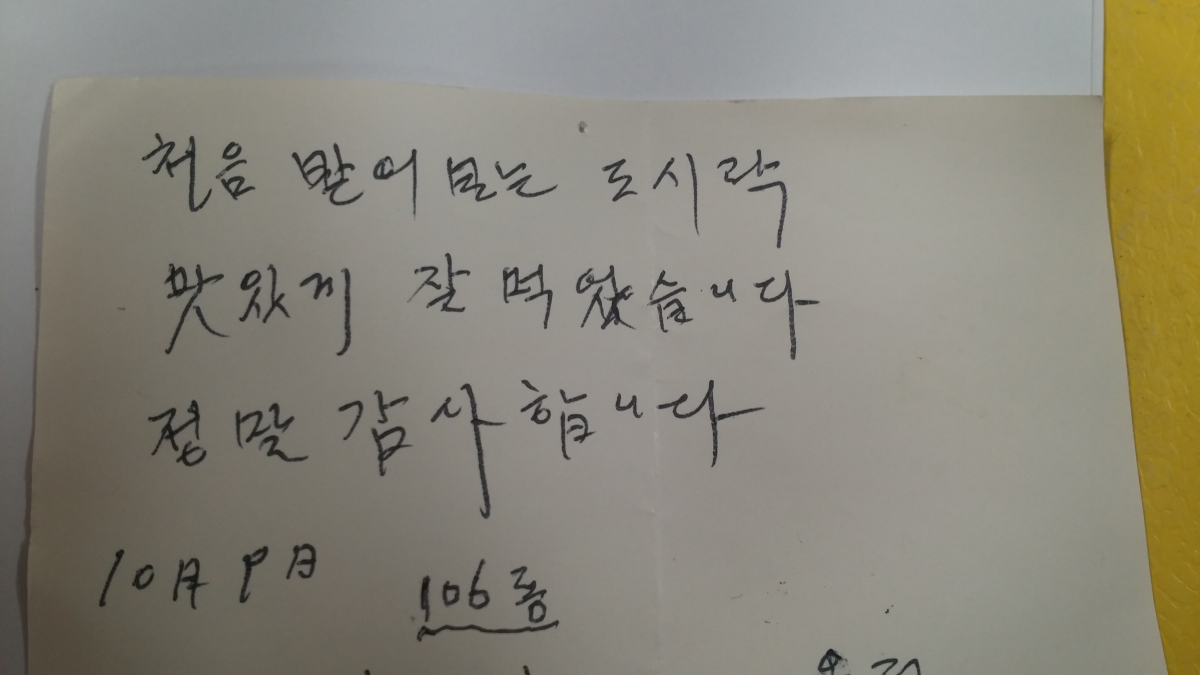 처음 받어보는 도시락
맛있게 잘 먹었습니다
정말 감사합니다
10月 9日 106동